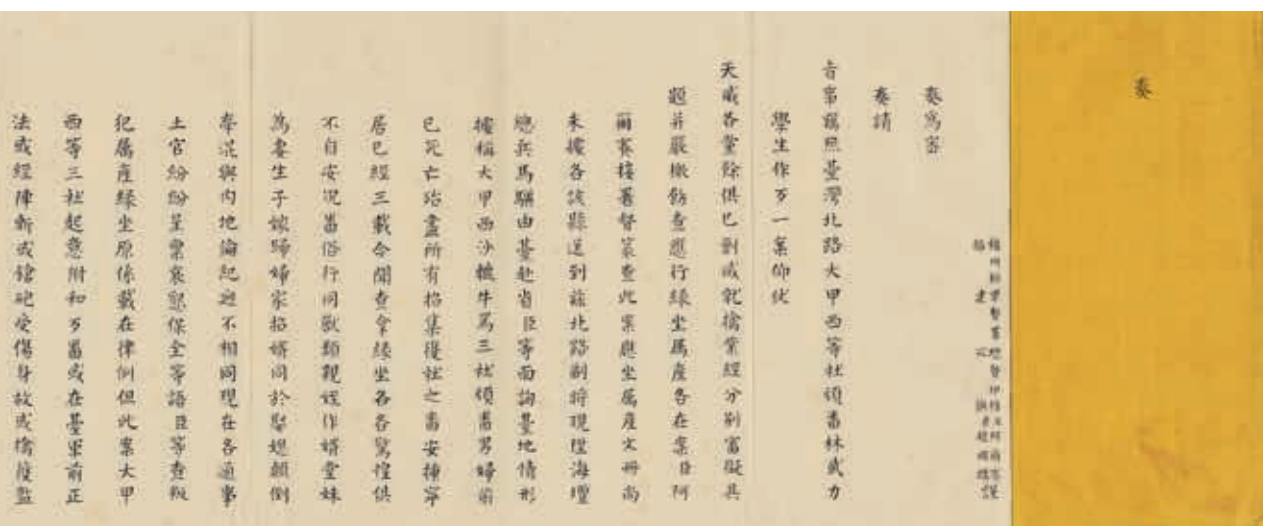 奏
奏爲密
奏請
旨事竊照臺灣北路大甲西等社頑番林武力
學生作歹一案仰仗
天威各黨餘俱已剿滅就擒業經分別審擬具
題并嚴檄飭查應行緣坐屬產各在案臣阿
爾賽接署督篆查此案應坐屬產文冊尚
未據各該縣送到茲北路副將現陞海壇
總兵馬驥由臺赴省臣等面詢臺地情形
據稱大甲西沙轆牛罵三社頑番男婦前
已死亡殆盡所有招集復社之番安揷寧
居已經三載今聞查拿緣坐各各驚惶俱
不自安況番俗行同獸類親姪作婿堂妹
爲妻生子嫁歸婦家招婿同於娶媳顛倒
牽混與內地倫紀迥不相同現在各通事
土官紛紛呈稟哀懇保全等語臣等查叛
犯屬產緣坐原係載在律例但此案大甲
西等三社起意附和歹番或在臺軍前正
法或經陣斬或鎗砲受傷身故或擒獲監